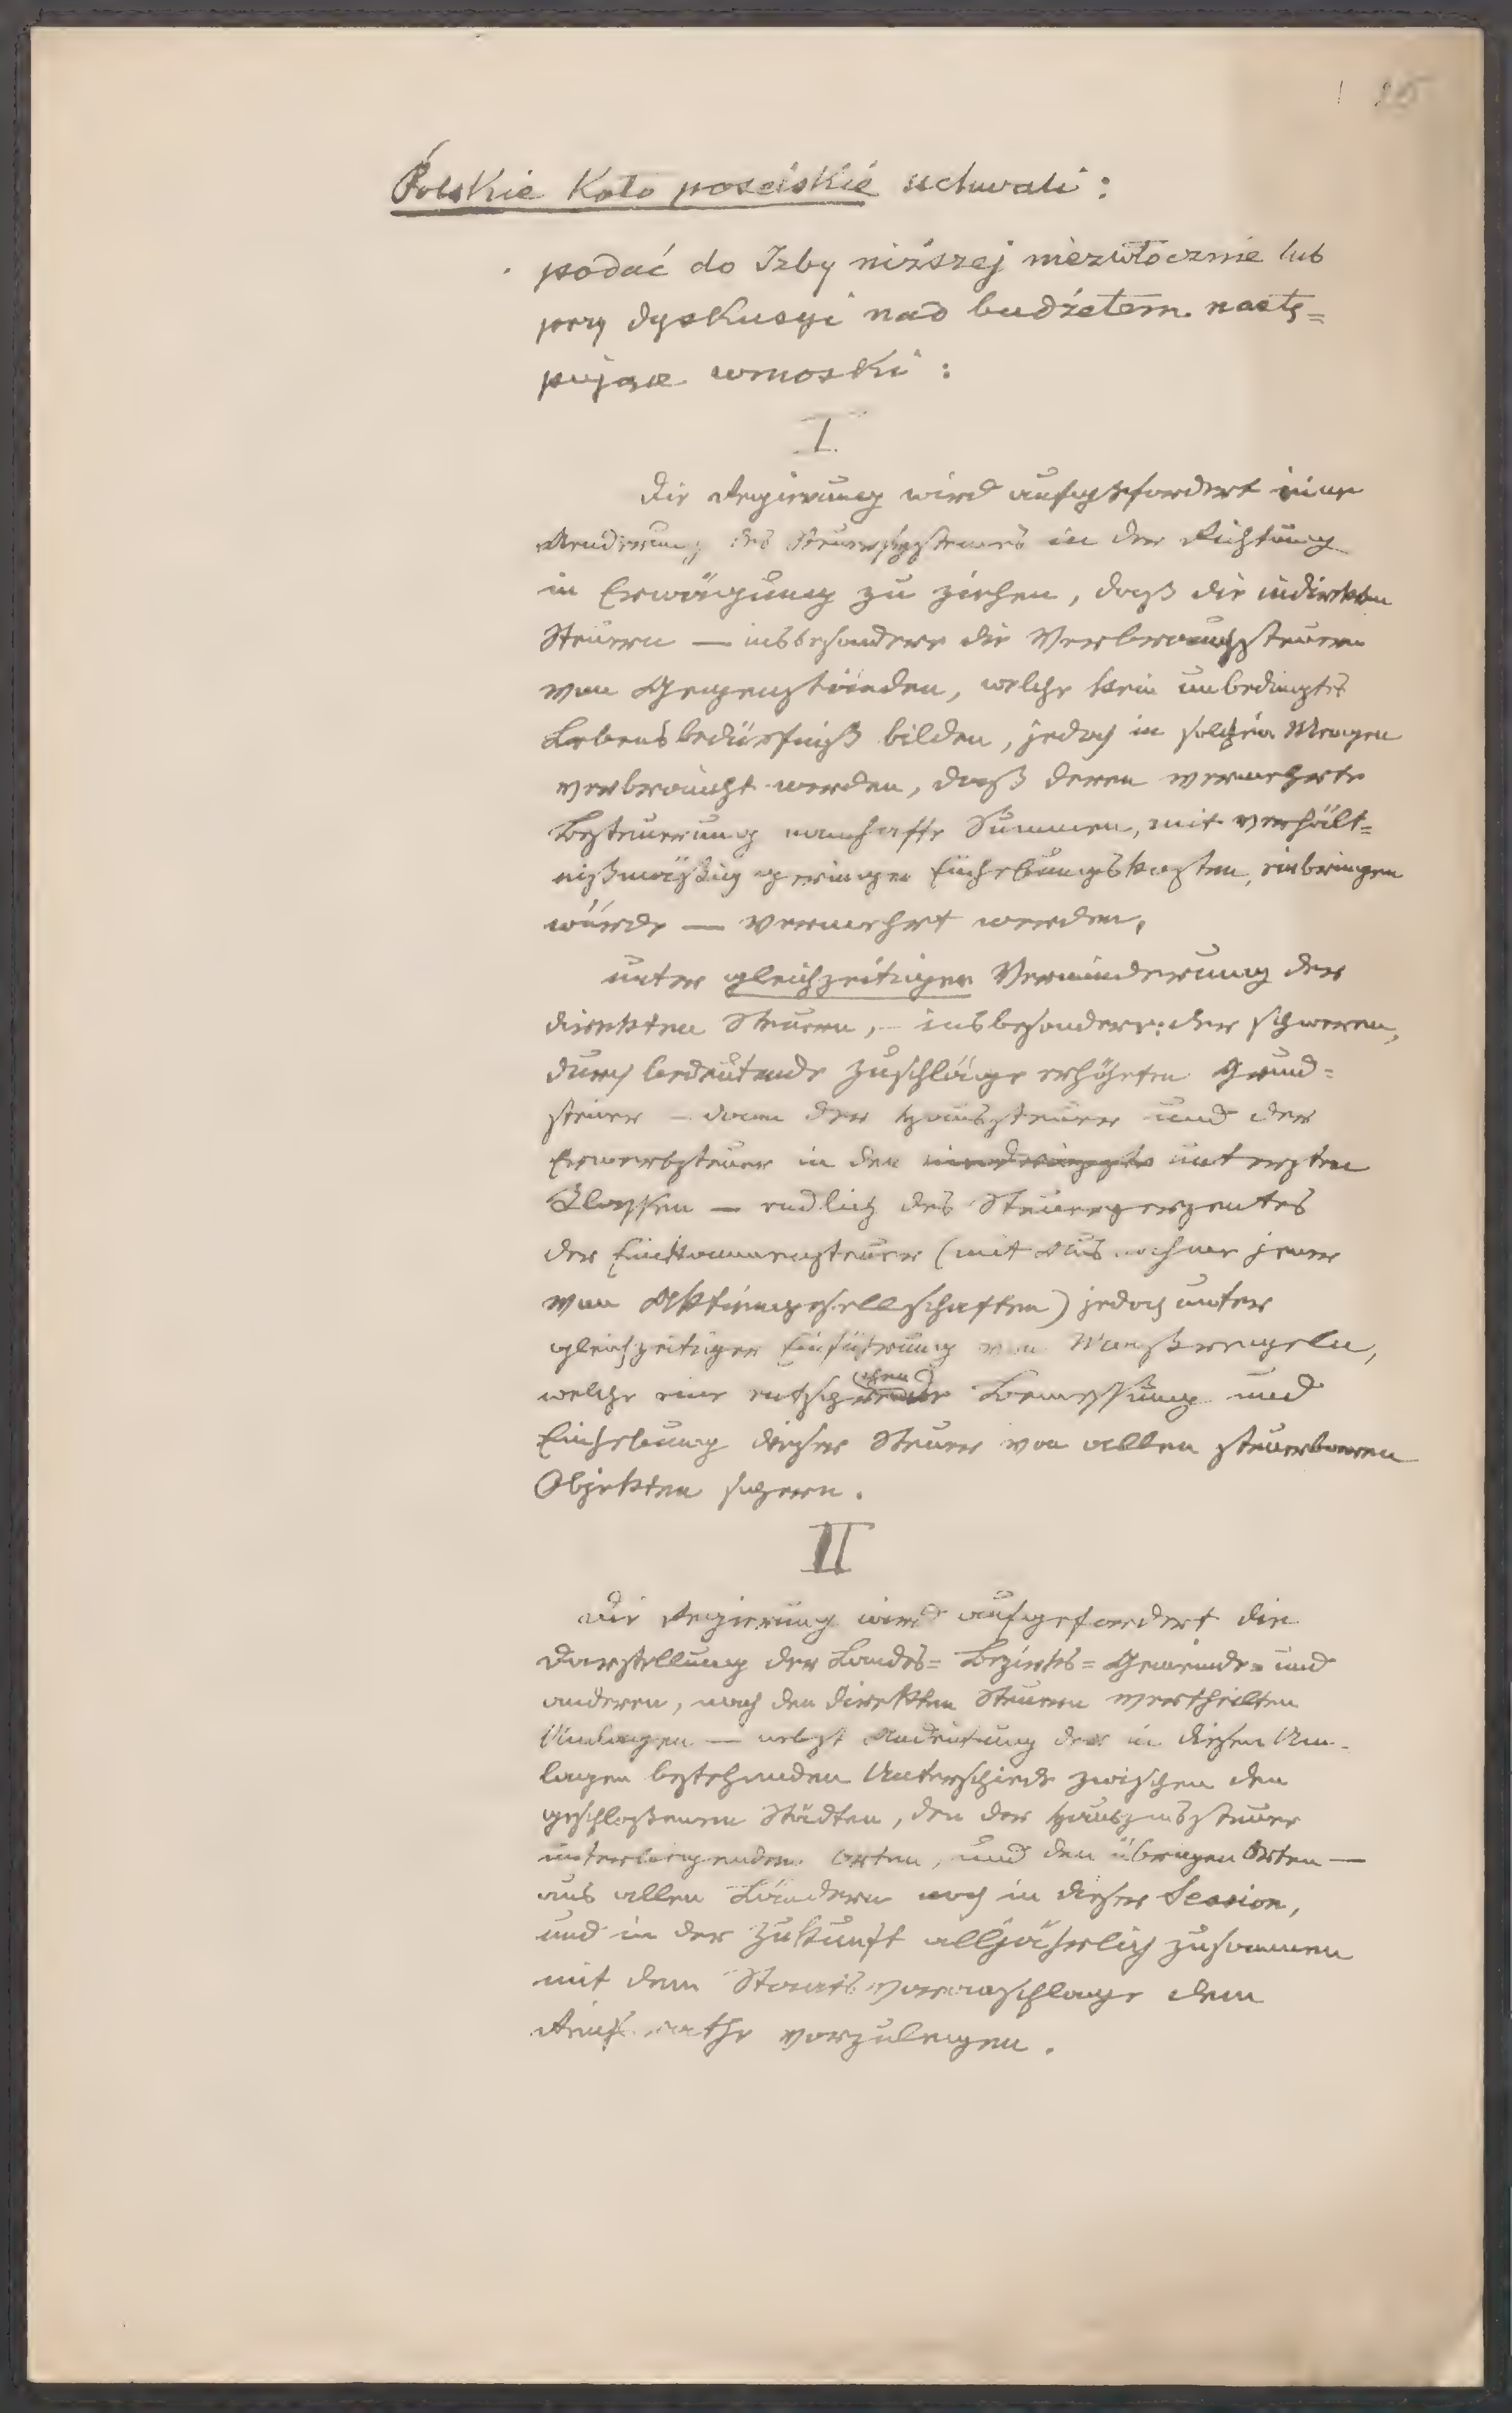 25
Polskie Koło poselskie uchwali:
podać do Izby niższej niezwłocznie lub
przy dyskusyi nad budżetem nastę=
pujące wnioski:
I.
Die Regierung wird aufgefordert eine
Aenderung des Steuersystemes in der Richtung
in Erwägung zu ziehen, daß die indirekten
Steuern — insbesondere die Verbrauchssteuern
von Gegenständen, welche kein unbedingtes
Lebensbedürfniß bilden, jedoch in solchen Mengen
verbraucht werden, daß deren vermehrte
Besteuerung namhafte Summen, mit verhält=
nißmäßig geringen Einhebungskosten, einbringen
würde — vermehrt werden,
unter gleichzeitiger Verminderung der
direkten Steuern, – insbesondere: der schweren,
durch bedeutende Zuschläge erhöhten Grund=
steuer – dann der Haussteuer und der
Erwerbsteuer in den untersten
Klassen — endlich des Steuerperzentes
der Einkommensteuer (mit Ausnahme jener
von Aktiengesellschaften) jedoch unter
gleichzeitiger Einführung von Maßregeln,
welche eine entsprechende Bemessung und
Einhebung dieser Steuer von allen steuerbaren
Objekten sichern.
II
Die Regierung wird aufgefordert die
Darstellung der Landes= Bezirks= Gemeinde= und
anderen, nach den direkten Steuern vertheilten
Umlagen — nebst Andeutung der in diesen Um-
lagen bestehenden Unterschiede zwischen den
geschloßenen Städten, den der Hauszinssteuer
unterliegenden Orten, und den übrigen Orten —
aus allen Ländern noch in dieser Session,
und in der Zukunft alljährlich zusammen
mit dem Staatsvoranschlage dem
Reichsrathe vorzulegen.